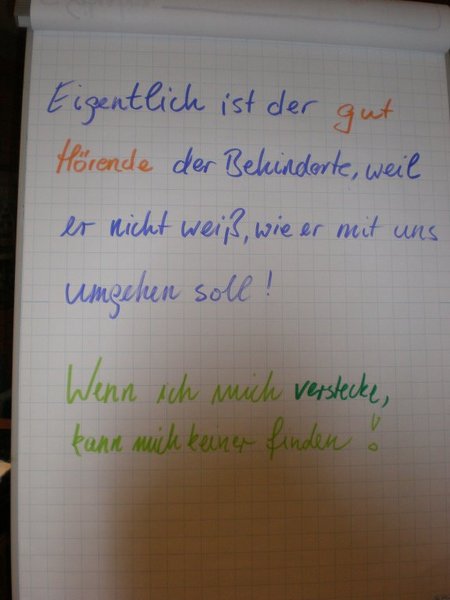 Eigentlich ist der gut
Hörende der Behinderte, weil
er nicht weiß, wie er mit uns
umgehen soll!
Wenn ich mich verstecke,
kann mich keiner finden!